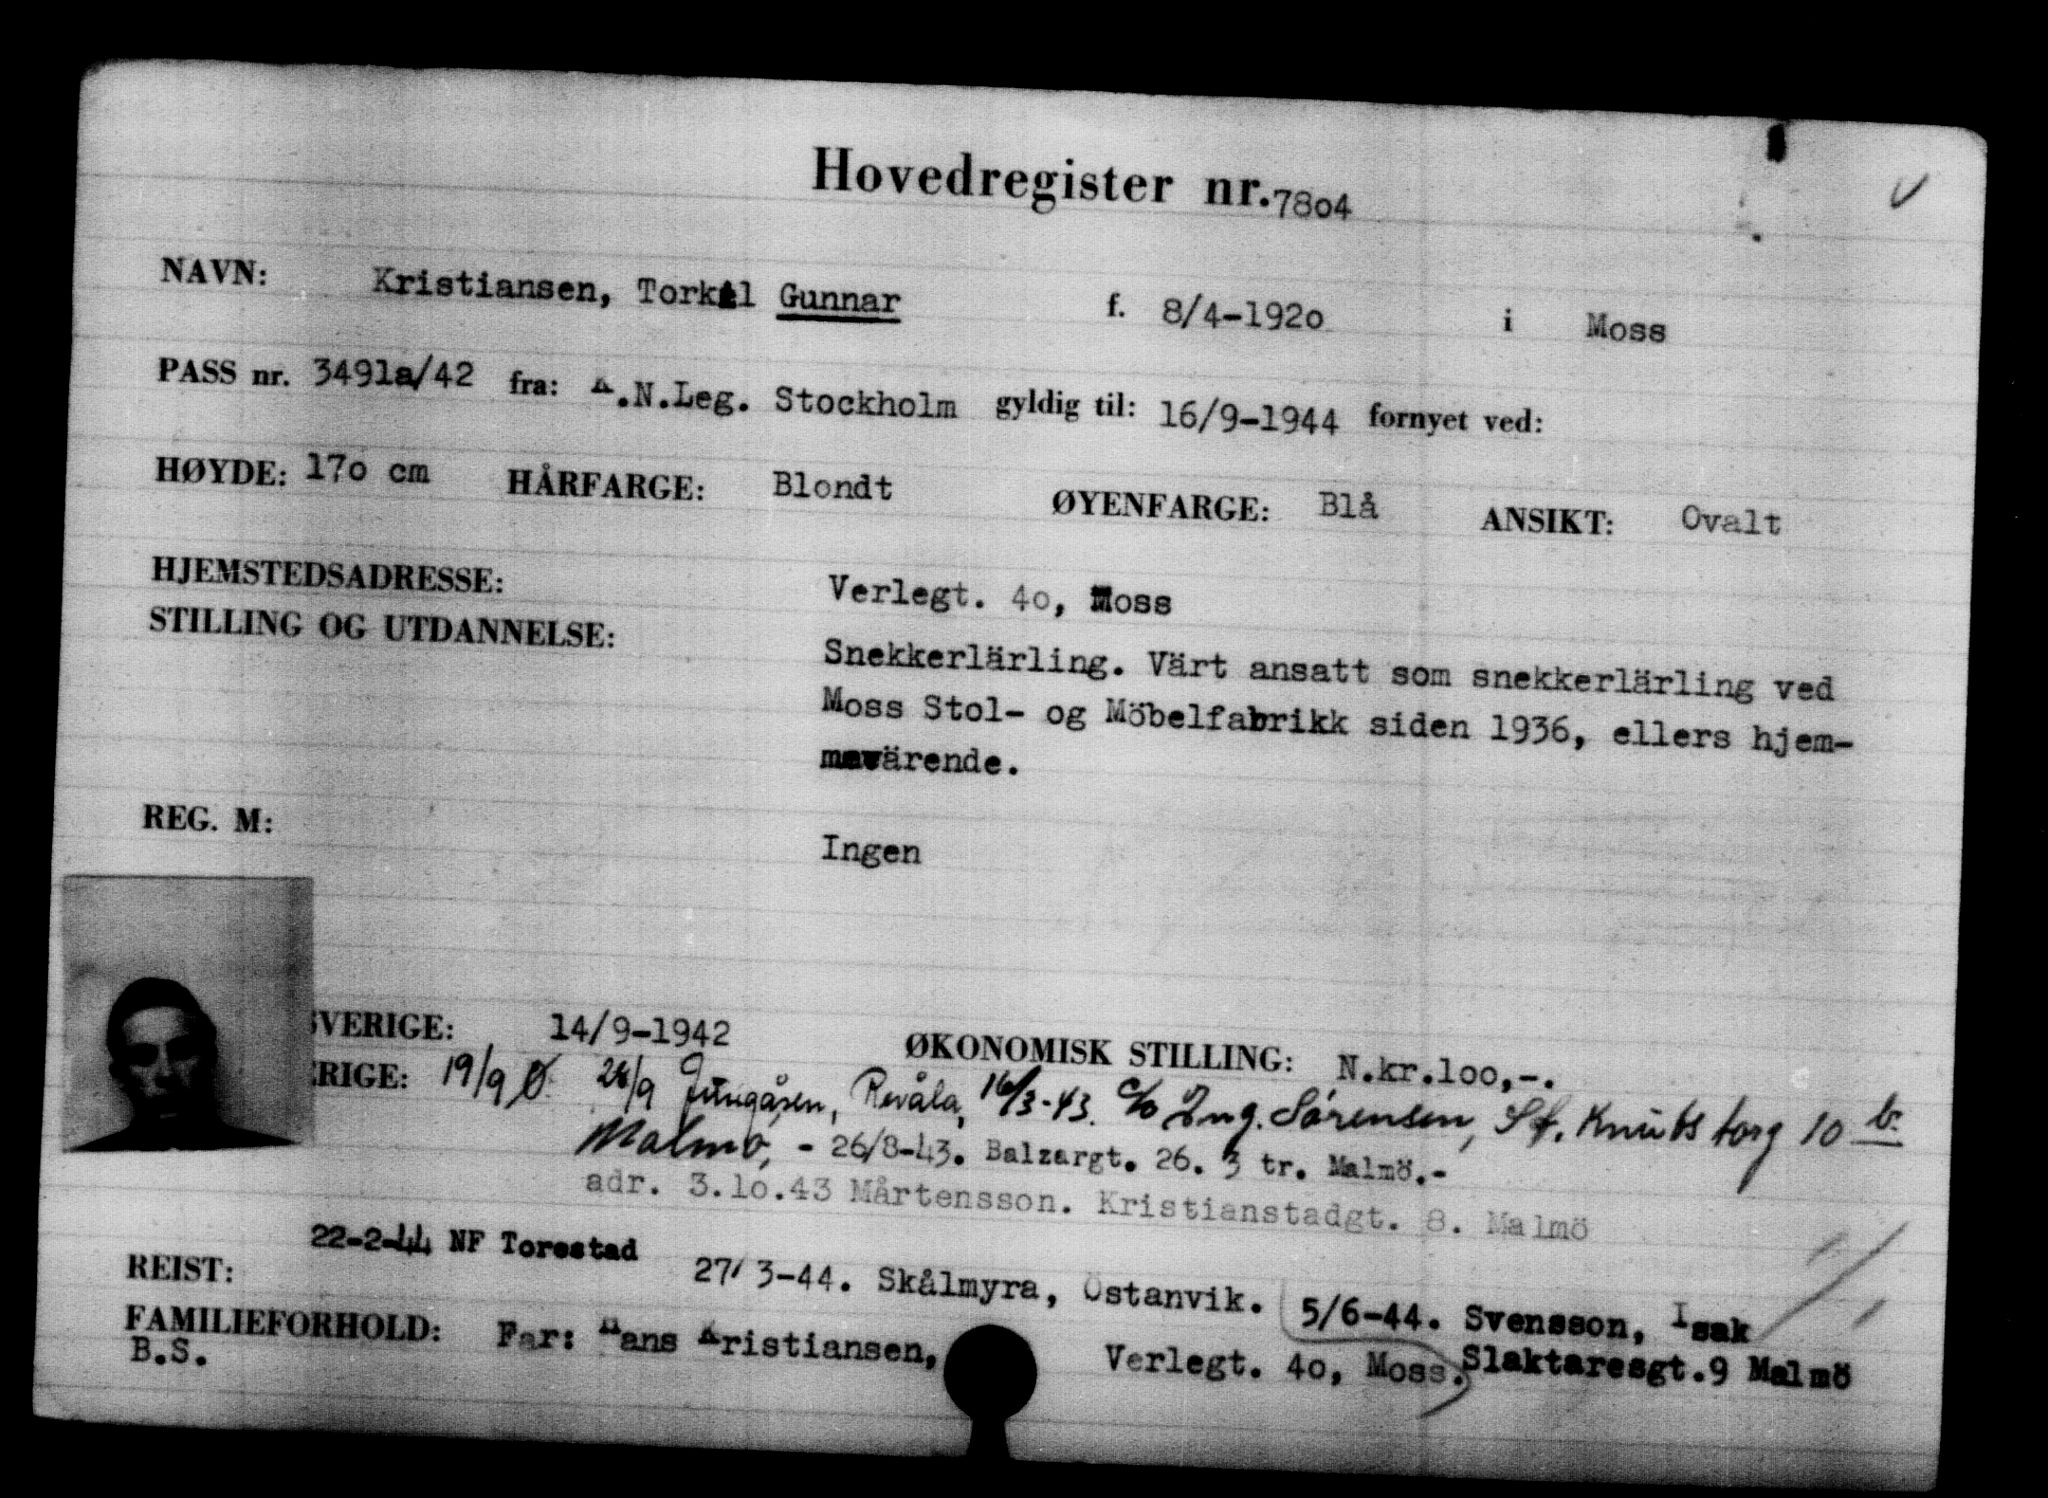 Hovedregister nr. 7804
NAVN: Kristiansen, Torkil Gunnar f. 8/4-1920 i Moss
PASS nr. 3491a/42 fra: K.N.Leg. Stockholm gyldig til: 16/9-1944 fornyet ved:
HØYDE: 170 cm HÅRFARGE: Blondt ØYENFARGE: Blå ANSIKT: Ovalt
HJEMSTEDSADRESSE: Verlegt. 40, Moss
STILLING OG UTDANNELSE: Snekkerlärling. Värt ansatt som snekkerlärling ved
Moss Stol- og Möbelfabrikk siden 1936, ellers hjem-
mevärende.
REG. M: Ingen
SVERIGE: 14/9-1942 ØKONOMISK STILLING: N.kr.100,-.
ERIGE: 19/9 Ø. 24/9 16/3-43. c/o Ing. Sörensen, St. Knuts torg 10 b.
Malmö, - 26/8-43. Balzargt. 26. 3 tr. Malmö.-
adr. 3.10.43 Mårtensson. Kristianstadgt. 8. Malmö
22-2-44 NF Torestad
REIST: 27/3-44. Skålmyra, Östanvik. 5/6-44. Svensson, Isak
FAMILIEFORHOLD: Far: Hans Kristiansen, Verlegt. 40, Moss. Slaktaresgt.9 Malmö
B.S.